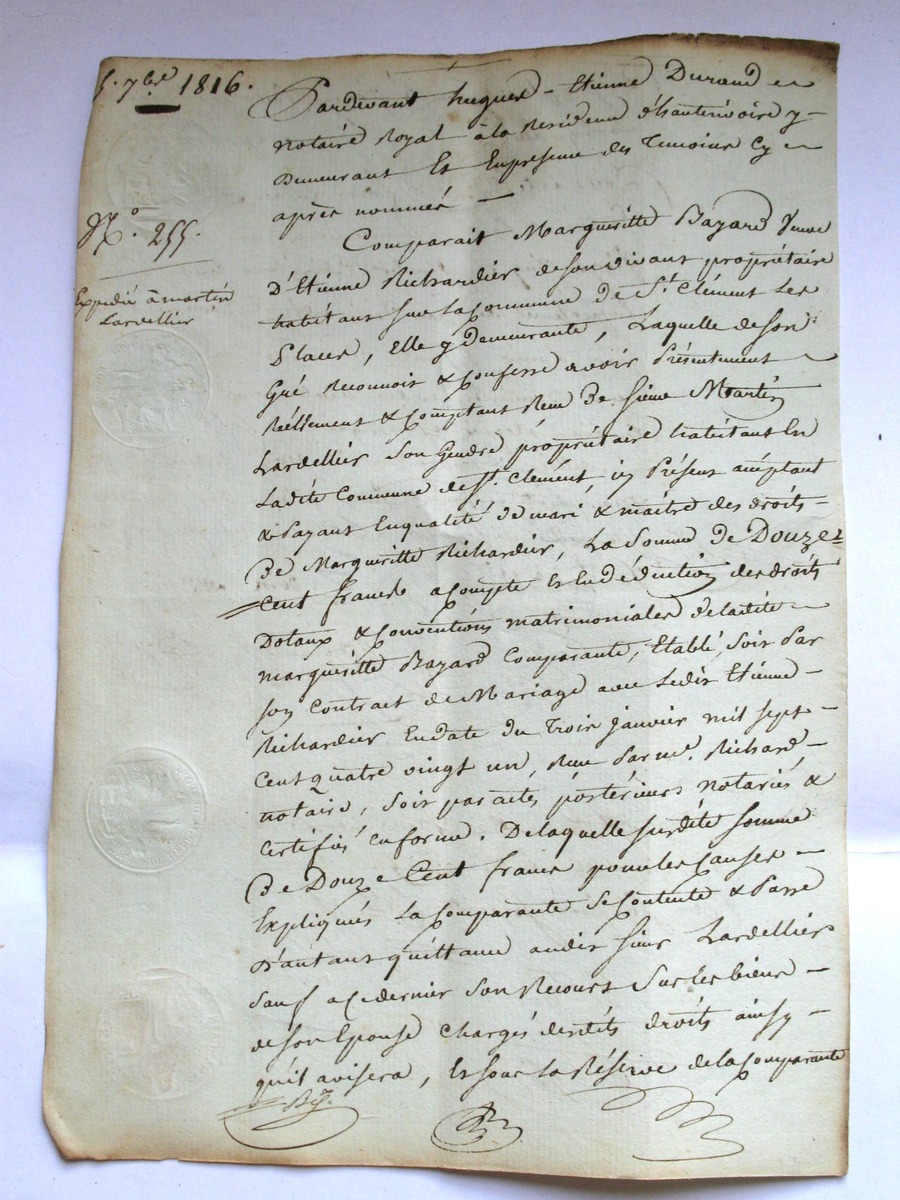 5. 7bre 1816.
N.° 255.
Expédié à martin
Lardellier
Pardevant hugues-Etienne Durand
notaire Royal à la Residence d'hauterivoire y
Demeurant Et Enpresence des Temoins Cy
après nommés
Comparait Margueritte Bazard Veuve
D'Etienne Richardier desonvivant propriétaire
habitant sur La Commune de St. Clément Les
Places, Elle y demeurante, Laquelle de son
Gré Reconnoit & Confesse avoir Présentement
Réellement & Comptant Reçu De sieur Martin
Lardellier son Gendre propriétaire habitant En
Ladite Commune de St. Clément, ici Présent acceptant
& Payant Enqualité de mari & maître des droits
De Margueritte Richardier, La Somme de Douze
Cent francs acompte Et En déduction des droits
Dotaux & Conventions matrimoniales deladite
margueritte Bazard Comparante, Etabli, soit Par
son Contrat de Mariage avec Ledit Etienne
Richardier Endate du Trois janvier mil sept
Cent quatre vingt un, Reçu Par me. Richard
notaire, soit par actes postérieurs notariés &
Certifiés en forme. Delaquelle susdite somme
De Douze Cent francs pour les Causes
Expliqués La Comparante se Contente & Passe
D'autant quittance audit sieur Lardellier
sauf a ce dernier son Recours sur les biens
de son Epouse Chargés desdits droits ainsy
qu'il avisera, Et sous La Réserve de la Comparante